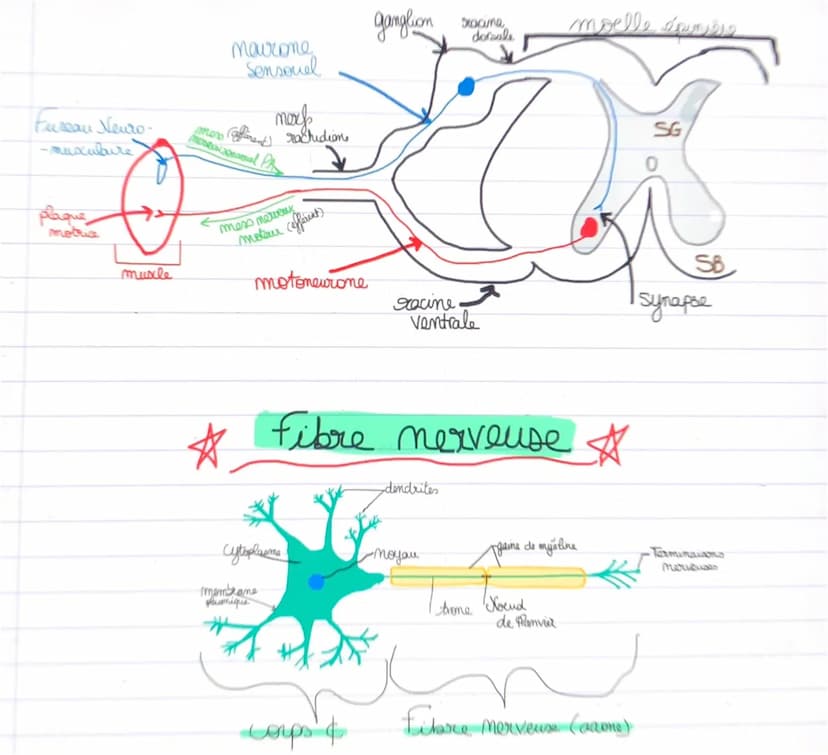 ganglion
racine
dorsale
moelle épinière
neurone
sensoriel
Fuseau Neuro-
-musculaire
mess (afférent)
nerveux sensoriel PA
nerf
rachidien
SG
plaque
motrice
mess nerveux
moteur (efférent)
muscle
motoneurone
racine
ventrale
SB
synapse
Fibre nerveuse
dendrites
cytoplasme
noyau
gaine de myéline
Terminaisons
nerveuses
membrane
plasmique
Axone
Noeud
de Ranvier
corps ¢
Fibre nerveuse (axone)